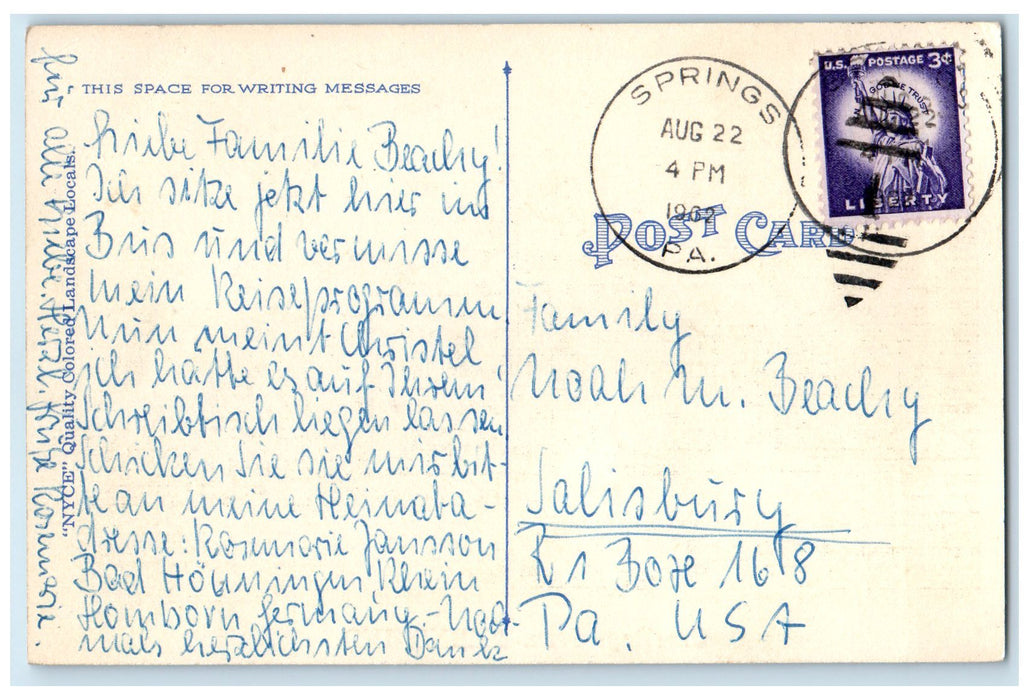 THIS SPACE FOR WRITING MESSAGES
Liebe Familie Beachy!
Ich sitze jetzt hier im
Bus und vermisse
mein Reiseprogramm
Nun meint Christel,
ich hätte es auf Ihrem
Schreibtisch liegen lassen
Schicken Sie sie mir bit-
te an meine Heimata-
dresse: Rosemarie Jansson
Bad Hönningen Rhein
Homborn Germany - Noch-
mals herzlichsten Dank
für alle Mühe. Herzl. Rosmarie.
"NYCE" Quality Colored Landscape Locals.
SPRINGS
AUG 22
4 PM
1962
PA.
U.S. POSTAGE 3¢
IN GOD WE TRUST
LIBERTY
POST CARD
Family
Noah M. Beachy
Salisbury
R1 Box 168
Pa. USA